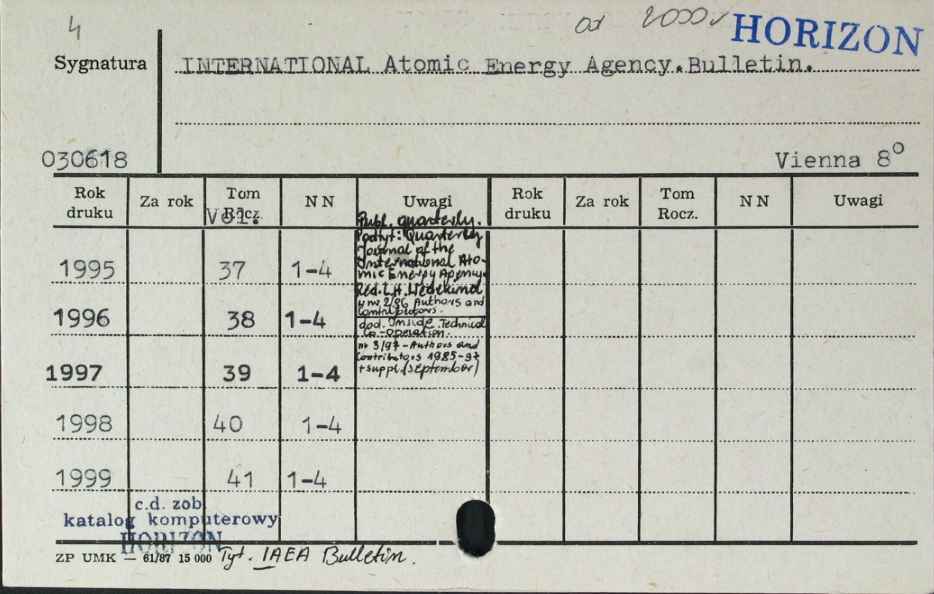 4
od 2000r
HORIZON
Sygnatura
INTERNATIONAL Atomic Energy Agency.Bulletin.
030618
Vienna 8º
Rok druku Za rok Tom Rocz. N N Uwagi Rok druku Za rok Tom Rocz. N N Uwagi
Vol.
Publ. quarterly.
Podtyt: Quarterly
Journal of the
International Ato-
mic Energy Agency.
1995 37 1-4
Red. L.H. Wedekind
w nr 2/86 Authors and
Contributors.
1996 38 1-4
dod. Inside Technical
Co-operation.
nr 3/97 - Authors and
Contributors 1985-97
+ suppl. (September)
1997 39 1-4
1998 40 1-4
1999 41 1-4
c.d. zob
katalog komputerowy
HORIZON
ZP UMK — 61/87 15 000 Tyt. IAEA Bulletin.